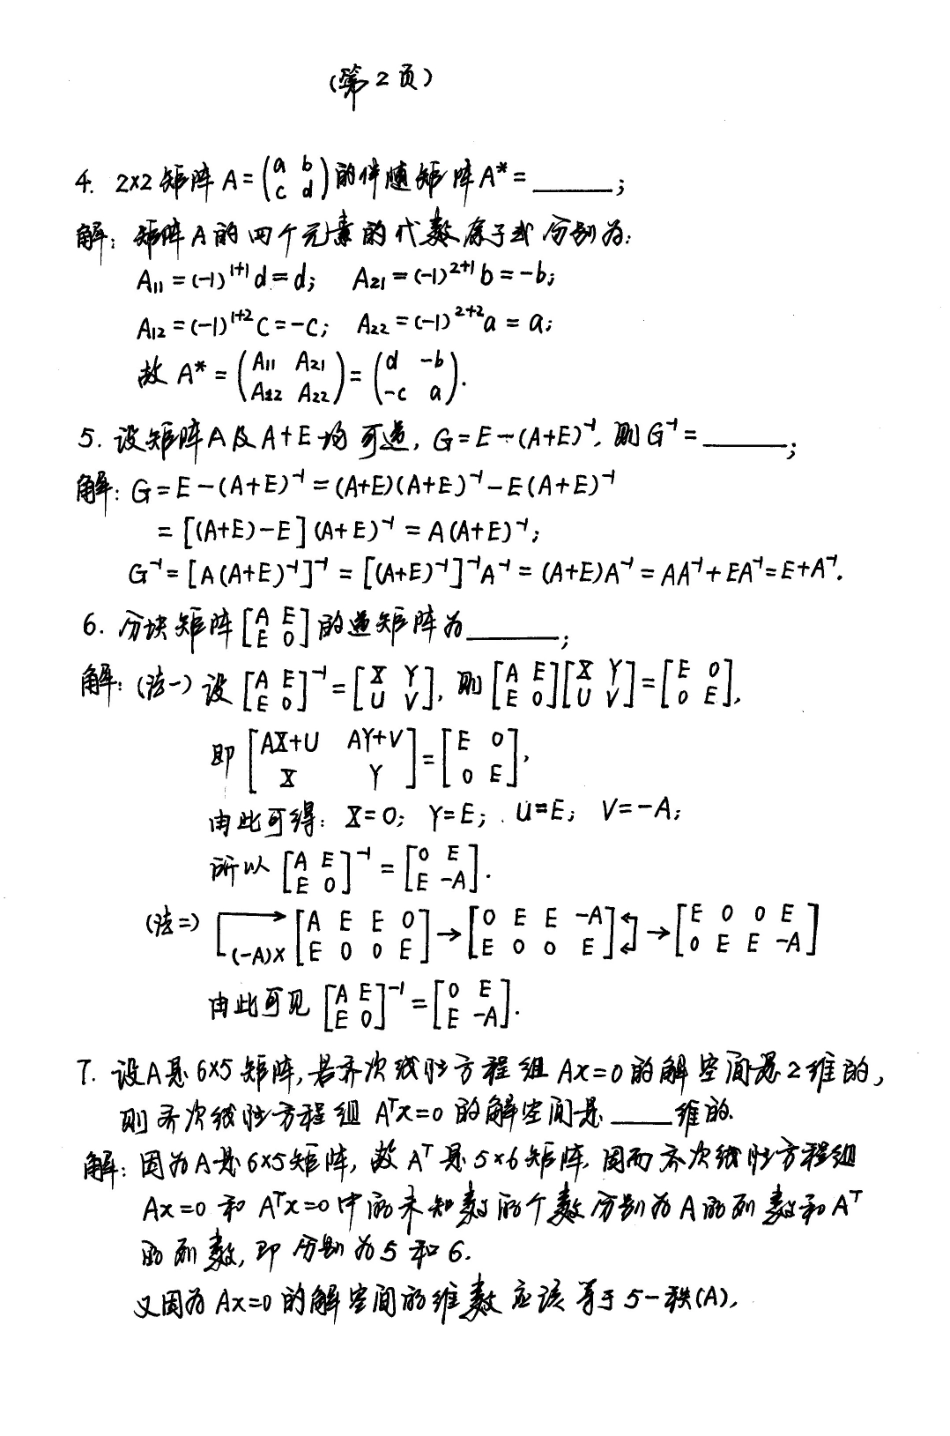 (第2页)
4. 2×2矩阵A=(a b; c d)的伴随矩阵A*=______;
解: 矩阵A的四个元素的代数余子式分别为:
A₁₁=(-1)¹⁺¹d=d; A₂₁=(-1)²⁺¹b=-b;
A₁₂=(-1)¹⁺²c=-c; A₂₂=(-1)²⁺²a=a;
故 A*=(A₁₁ A₂₁; A₁₂ A₂₂)=(d -b; -c a).
5. 设矩阵A及A+E均可逆, G=E-(A+E)⁻¹, 则G⁻¹=______;
解: G=E-(A+E)⁻¹=(A+E)(A+E)⁻¹-E(A+E)⁻¹
=[(A+E)-E](A+E)⁻¹=A(A+E)⁻¹;
G⁻¹=[A(A+E)⁻¹]⁻¹=[(A+E)⁻¹]⁻¹A⁻¹=(A+E)A⁻¹=AA⁻¹+EA⁻¹=E+A⁻¹.
6. 分块矩阵[A E; E O]的逆矩阵为______;
解: (法一) 设[A E; E O]⁻¹=[X Y; U V], 则[A E; E O][X Y; U V]=[E O; O E],
即[AX+U AY+V; X Y]=[E O; O E],
由此可得: X=O; Y=E; U=E; V=-A;
所以[A E; E O]⁻¹=[O E; E -A].
(法二) (-A)×[A E E O; E O O E]→[O E E -A; E O O E]→[E O O E; O E E -A]
由此可见[A E; E O]⁻¹=[O E; E -A].
7. 设A是6×5矩阵, 若齐次线性方程组Ax=0的解空间是2维的,
则齐次线性方程组AᵀX=0的解空间是____维的.
解: 因为A是6×5矩阵, 故Aᵀ是5×6矩阵, 因而齐次线性方程组
Ax=0和Aᵀx=0中的未知数的个数分别为A的列数和Aᵀ
的列数, 即分别为5和6.
又因为Ax=0的解空间的维数应该等于5-秩(A),